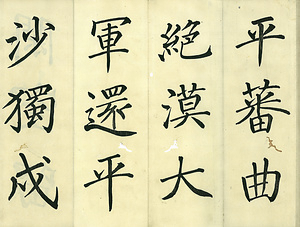 平蕃曲
絶漠大
軍還平
沙獨戍